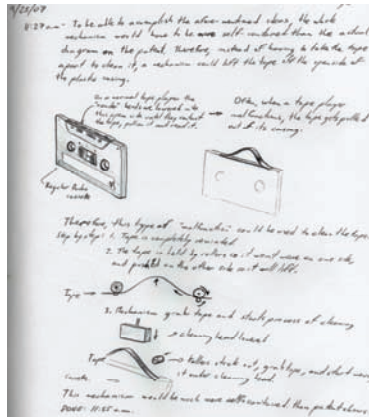 8:27am - To be able to accomplish the above-mentioned ideas, the whole
mechanism would have to be more self-contained than the actual
diagram on the patent. Therefore, instead of having to take the tape
apart to clean it, a mechanism could lift the tape off the open side of
the plastic casing.
On a normal tape player the
heads are lowered into
this open side until they contact
the tape, pull on it and read it.
Often, when a tape player
malfunctions, the tape gets pulled
out of its casing.
Regular Audio
cassette
Therefore, this type of "malfunction" could be used to clean the tape.
Step by step: 1. Tape is completely
2. The tape is held by rollers so it won't move on one side,
and on the other side so it will lift.
Tape
3. Mechanism grabs tape and starts process of cleaning
cleaning head lowers
Tape
Rollers stick out, grab tape, and start
it under cleaning head.
This mechanism would be much more self-contained than patent
DONE: 11:55 a.m.